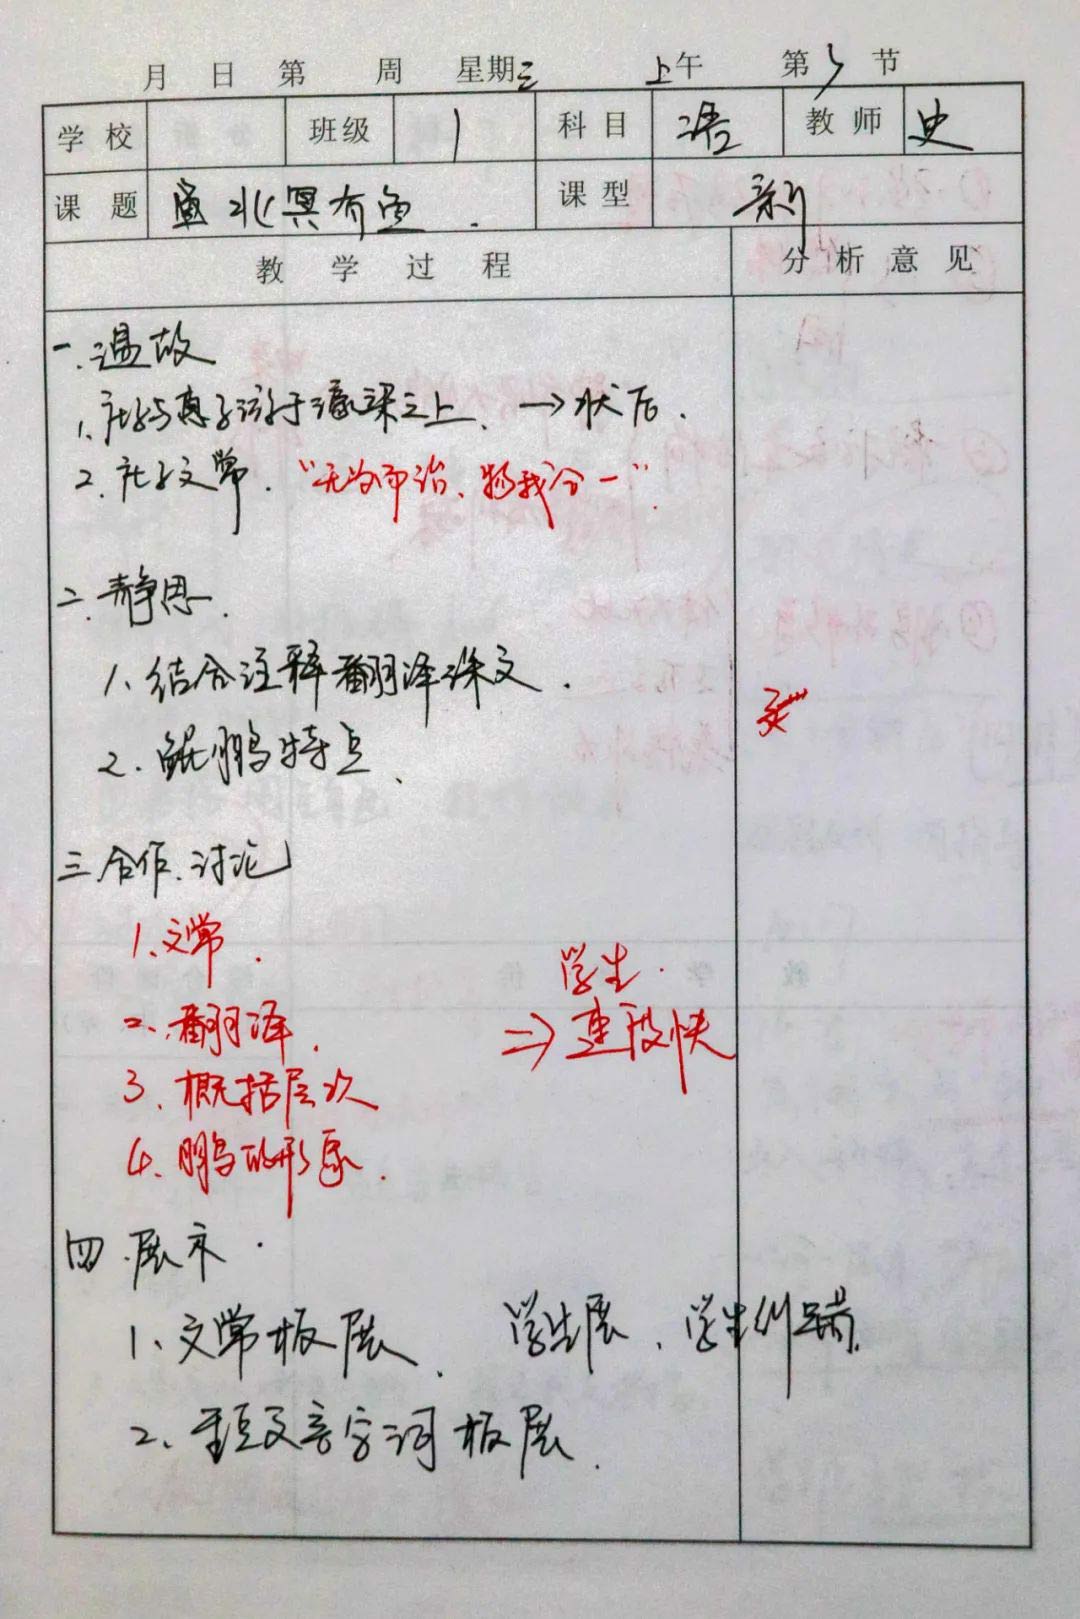 月 日 第 周 星期三 上午 第 节
学校 班级 1 科目 语 教师 史
课题 北冥有鱼. 课型 新
教学过程 分析意见
一.温故
1.庄子与惠子游于濠梁之上. →状后.
2.庄子文常. “无为而治、物我合一”.
二.静思.
1.结合注释翻译课文.
2.鲲鹏特点.
三.合作.讨论
1.文常.
2.翻译.
3.概括层次
4.鹏的形象.
学生.
⇒速度快
四.展示.
1.文常板展. 学生展.学生纠错.
2.重点文言字词板展.